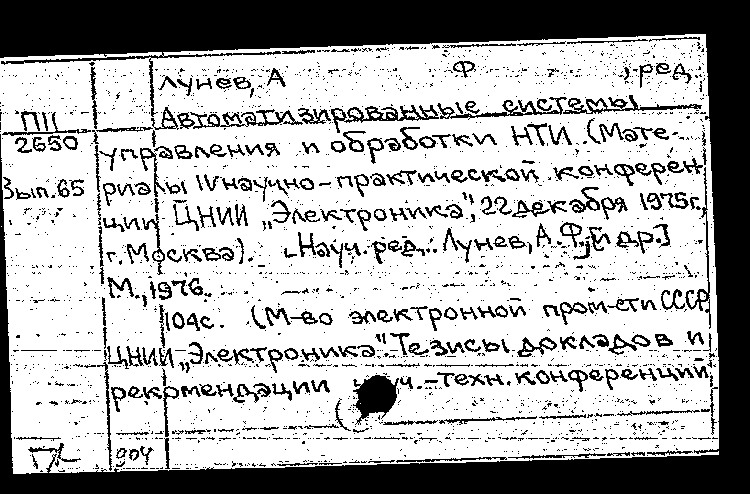 Лунев, А Ф , ред.
П11 Автоматизированные системы
2650 управления и обработки НТИ. (Мате-
Вып.65 риалы IV научно-практической конферен-
ции ЦНИИ „Электроника", 22 декабря 1975г.,
г. Москва). - Науч. ред.: Лунев, А.Ф. [и др.]
М., 1976.
104с. (М-во электронной пром-сти СССР.
ЦНИИ „Электроника". Тезисы докладов и
рекомендации науч.-техн. конференций,
904